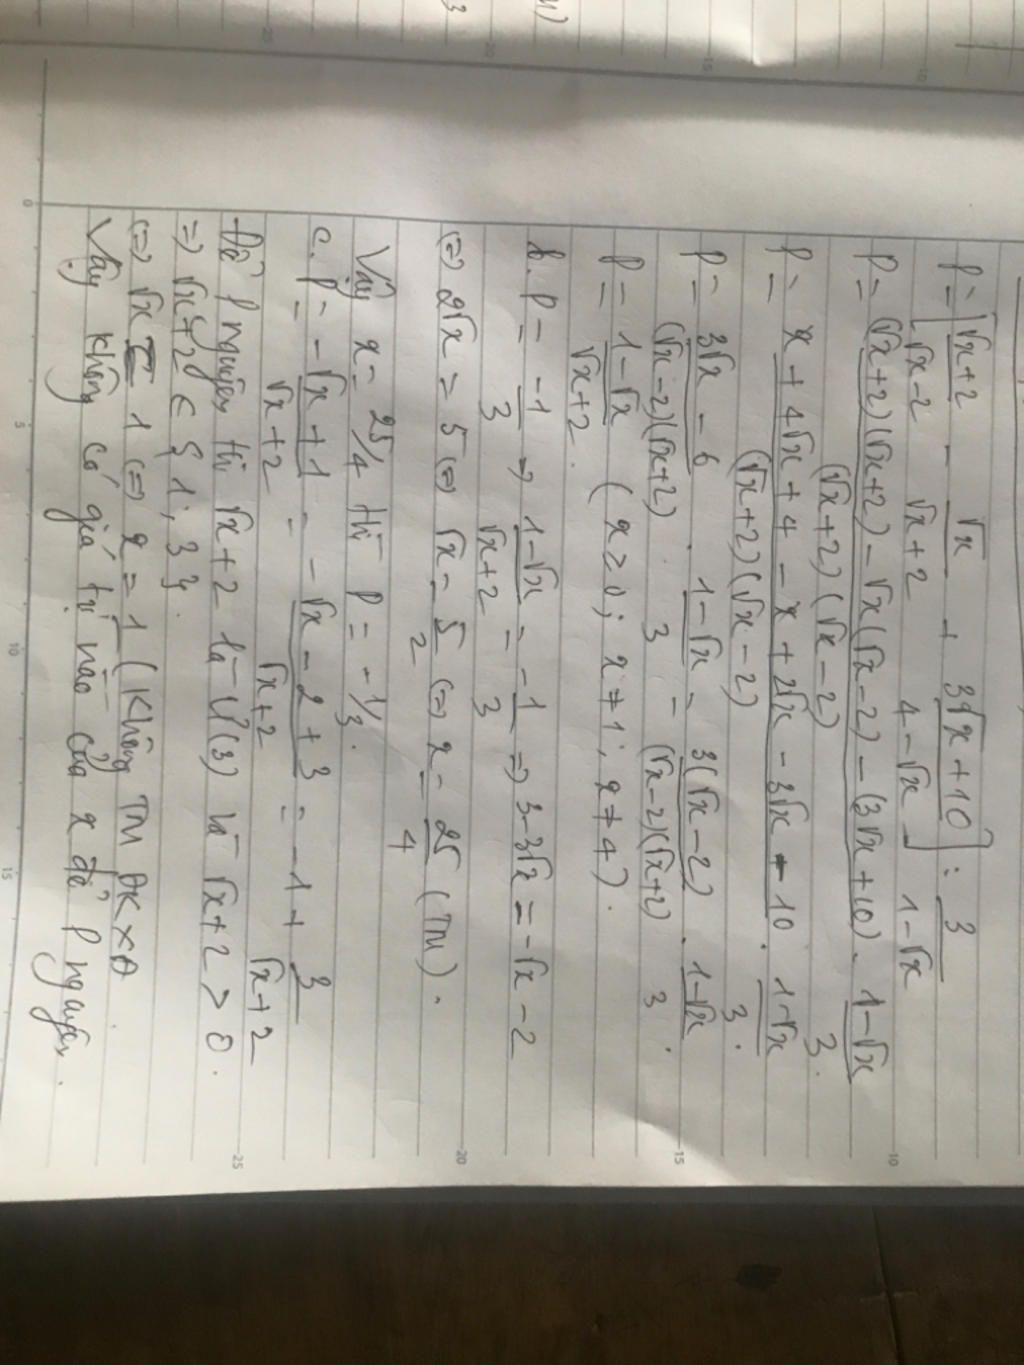 P = [ (√x+2)/(√x-2) - √x/(√x+2) + (3√x+10)/(4-√x) ] : 3/(1-√x)
P = ((√x+2)(√x+2) - √x(√x-2) - (3√x+10))/((√x+2)(√x-2)) . (1-√x)/3.
P = (x + 4√x + 4 - x + 2√x - 3√x - 10)/((√x+2)(√x-2)) . (1-√x)/3.
P = (3√x - 6)/((√x-2)(√x+2)) . (1-√x)/3 = (3(√x-2))/((√x-2)(√x+2)) . (1-√x)/3.
P = (1-√x)/(√x+2). (x ≥ 0; x ≠ 1; x ≠ 4).
b. P = -1/3 → (1-√x)/(√x+2) = -1/3 => 3-3√x = -√x - 2
(=) 2√x = 5 (=) √x = 5/2 (=) x = 25/4 (TM).
Vậy x = 25/4 thì P = -1/3.
c. P = (-√x+1)/(√x+2) = (-√x-2+3)/(√x+2) = -1 + 3/(√x+2)
Để P nguyên thì √x+2 là Ư(3) và √x+2 > 0.
=> √x+2 ∈ {1; 3}.
(=) √x = 1 (=) x = 1 (Không TM ĐKXĐ
Vậy không có giá trị nào của x để P nguyên.